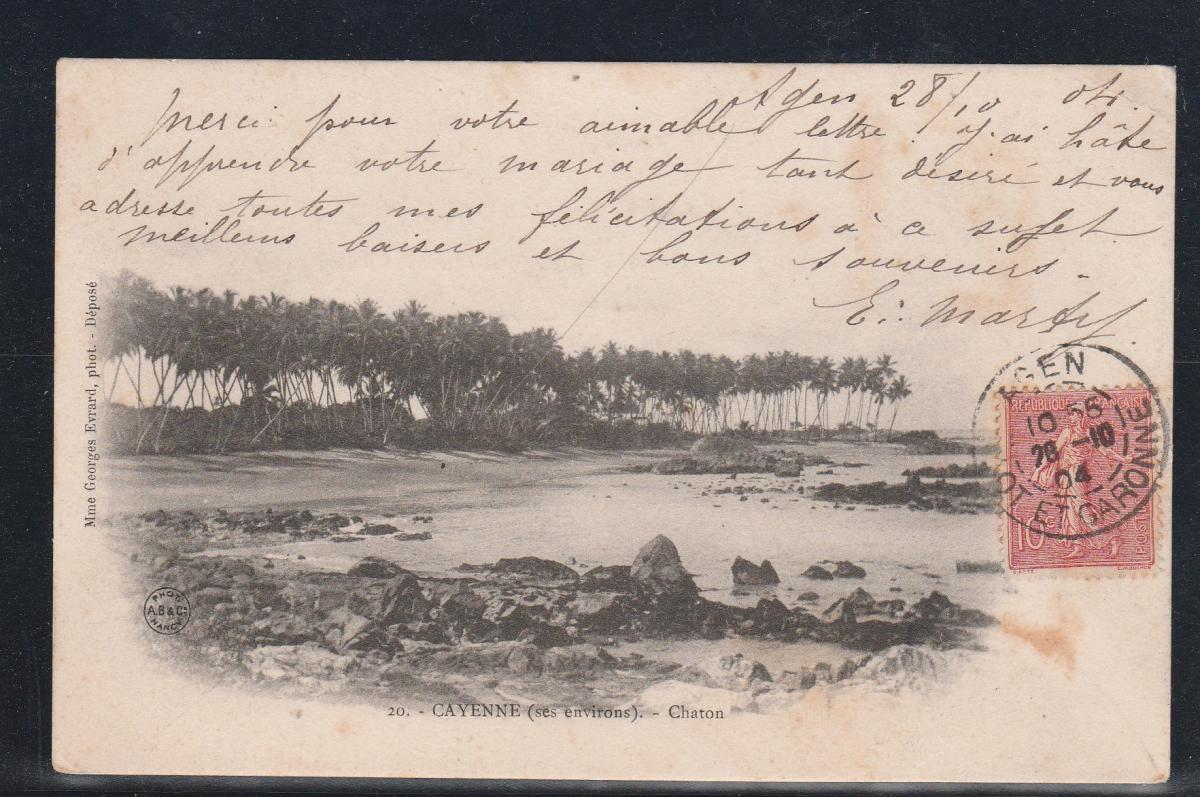 Agen 28/10 04.
Merci pour votre aimable lettre. J'ai hâte
d'apprendre votre mariage tant désiré et vous
adresse toutes mes félicitations à ce sujet.
Meilleurs baisers et bons souvenirs.
E. Marty
Mme Georges Evrard, phot. - Déposé
AGEN
10 56
28 -10
04
LOT ET GARONNE
REPUBLIQUE FRANÇAISE
10
POSTES
PHOT
A.B & Cie
NANCY
20. - CAYENNE (ses environs). - Chaton